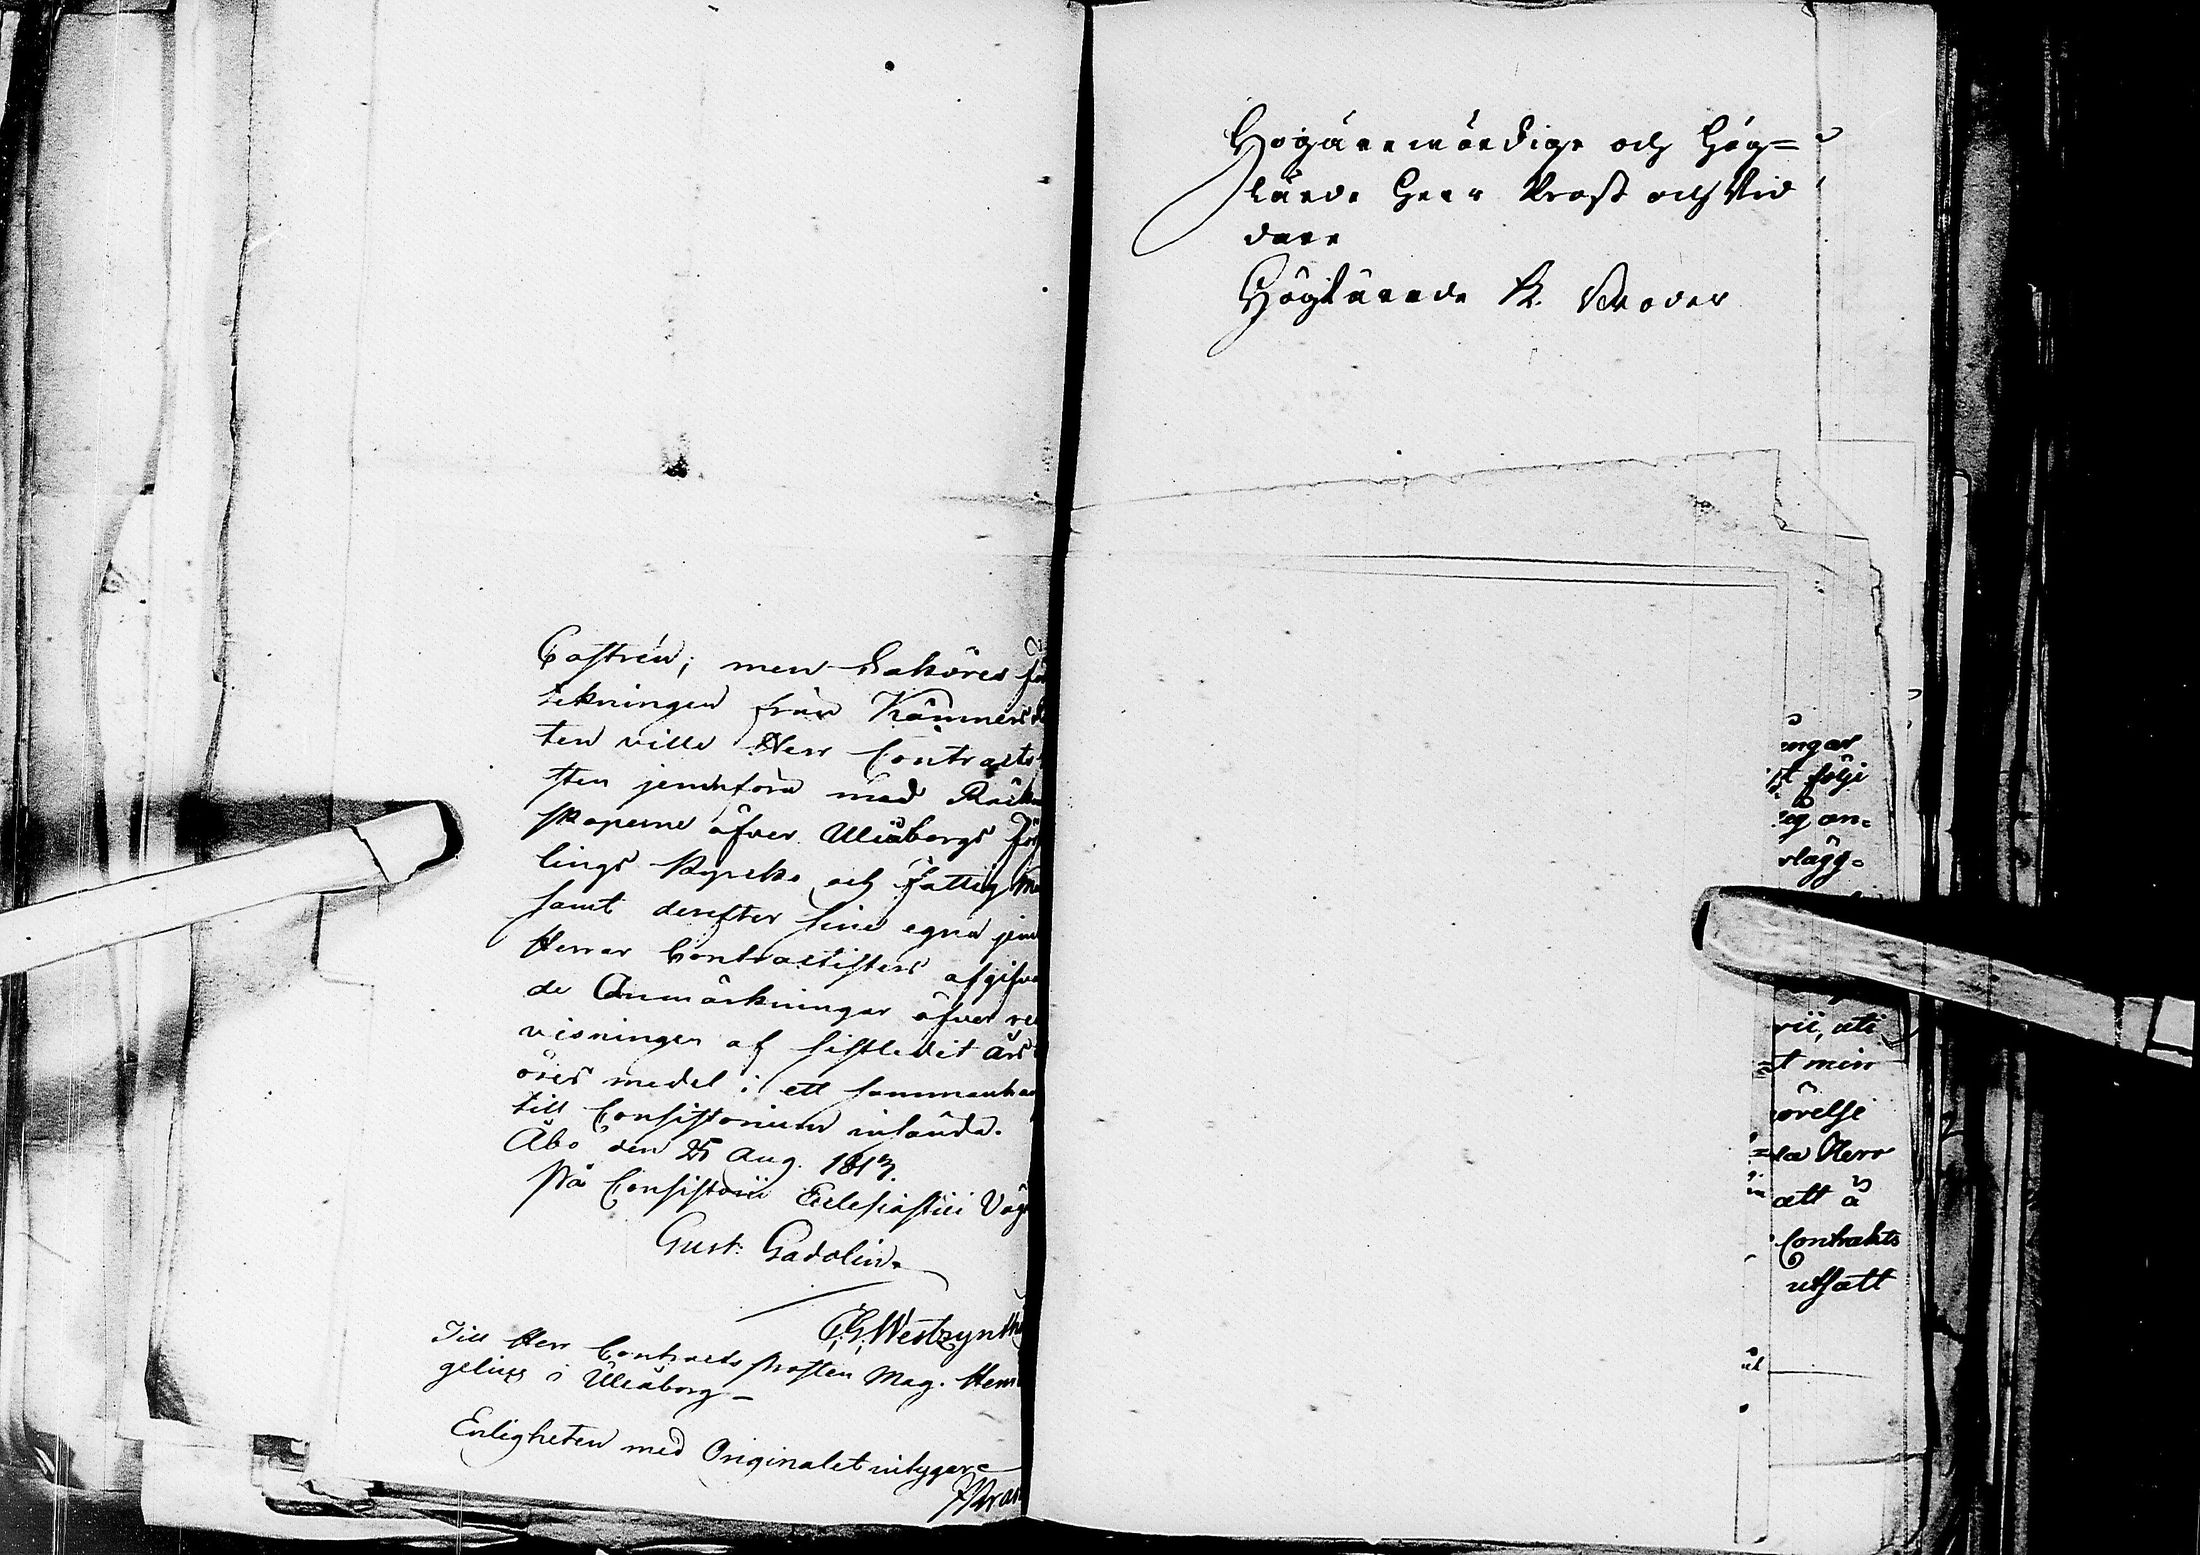 Castrén; men Saköres
räkningen från Kämners
ten ville Herr Contracts
sten jemnföra med Räken
skaperne öfver Uleåborgs
lings Kyrko och Fattig
samt derefter sine egna jem
Herrar Contractisters afgifva
de Anmärkningar öfver re
visningen af sistledit års
öres medel i ett sammanhan
till Consistorium insända.
Åbo den 25 Aug. 1813.
På Consistorii Ecclesiastici Väg
Gust: Gadolin.
C.G. Westzynth
Till Herr Contracts Prosten Mag. Hem
gelius i Uleåborg
Enligheten med Originalet intygar
Högärevördige och Hög=
lärde Herr Prost och Rid
dare
Höglärade K. Broder
ungar
följe
an=
slägg=
rii, att
t min
örelse
la Herr
att å
Contrakts
utsatt